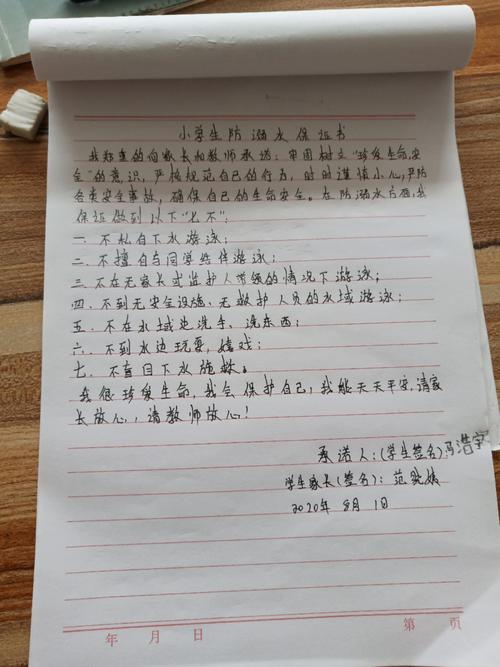 小学生防溺水保证书
我郑重的向家长和教师承诺：牢固树立“珍爱生命，安
全”的意识，严格规范自己的行为，时时谨慎小心，严防
各类安全事故，确保自己的生命安全。在防溺水方面，我
保证做到以下“七不”：
一、不私自下水游泳；
二、不擅自与同学结伴游泳；
三、不在无家长或监护人带领的情况下游泳；
四、不到无安全设施、无救护人员的水域游泳；
五、不在水域边洗手、洗东西；
六、不到水边玩耍，嬉戏；
七、不盲目下水施救。
我很珍爱生命，我会保护自己，我能天天平安，请家
长放心，请教师放心！
承诺人：（学生签名）冯浩宇
学生家长（签名）：范
2020年 8月 1日
年 月 日 第 页